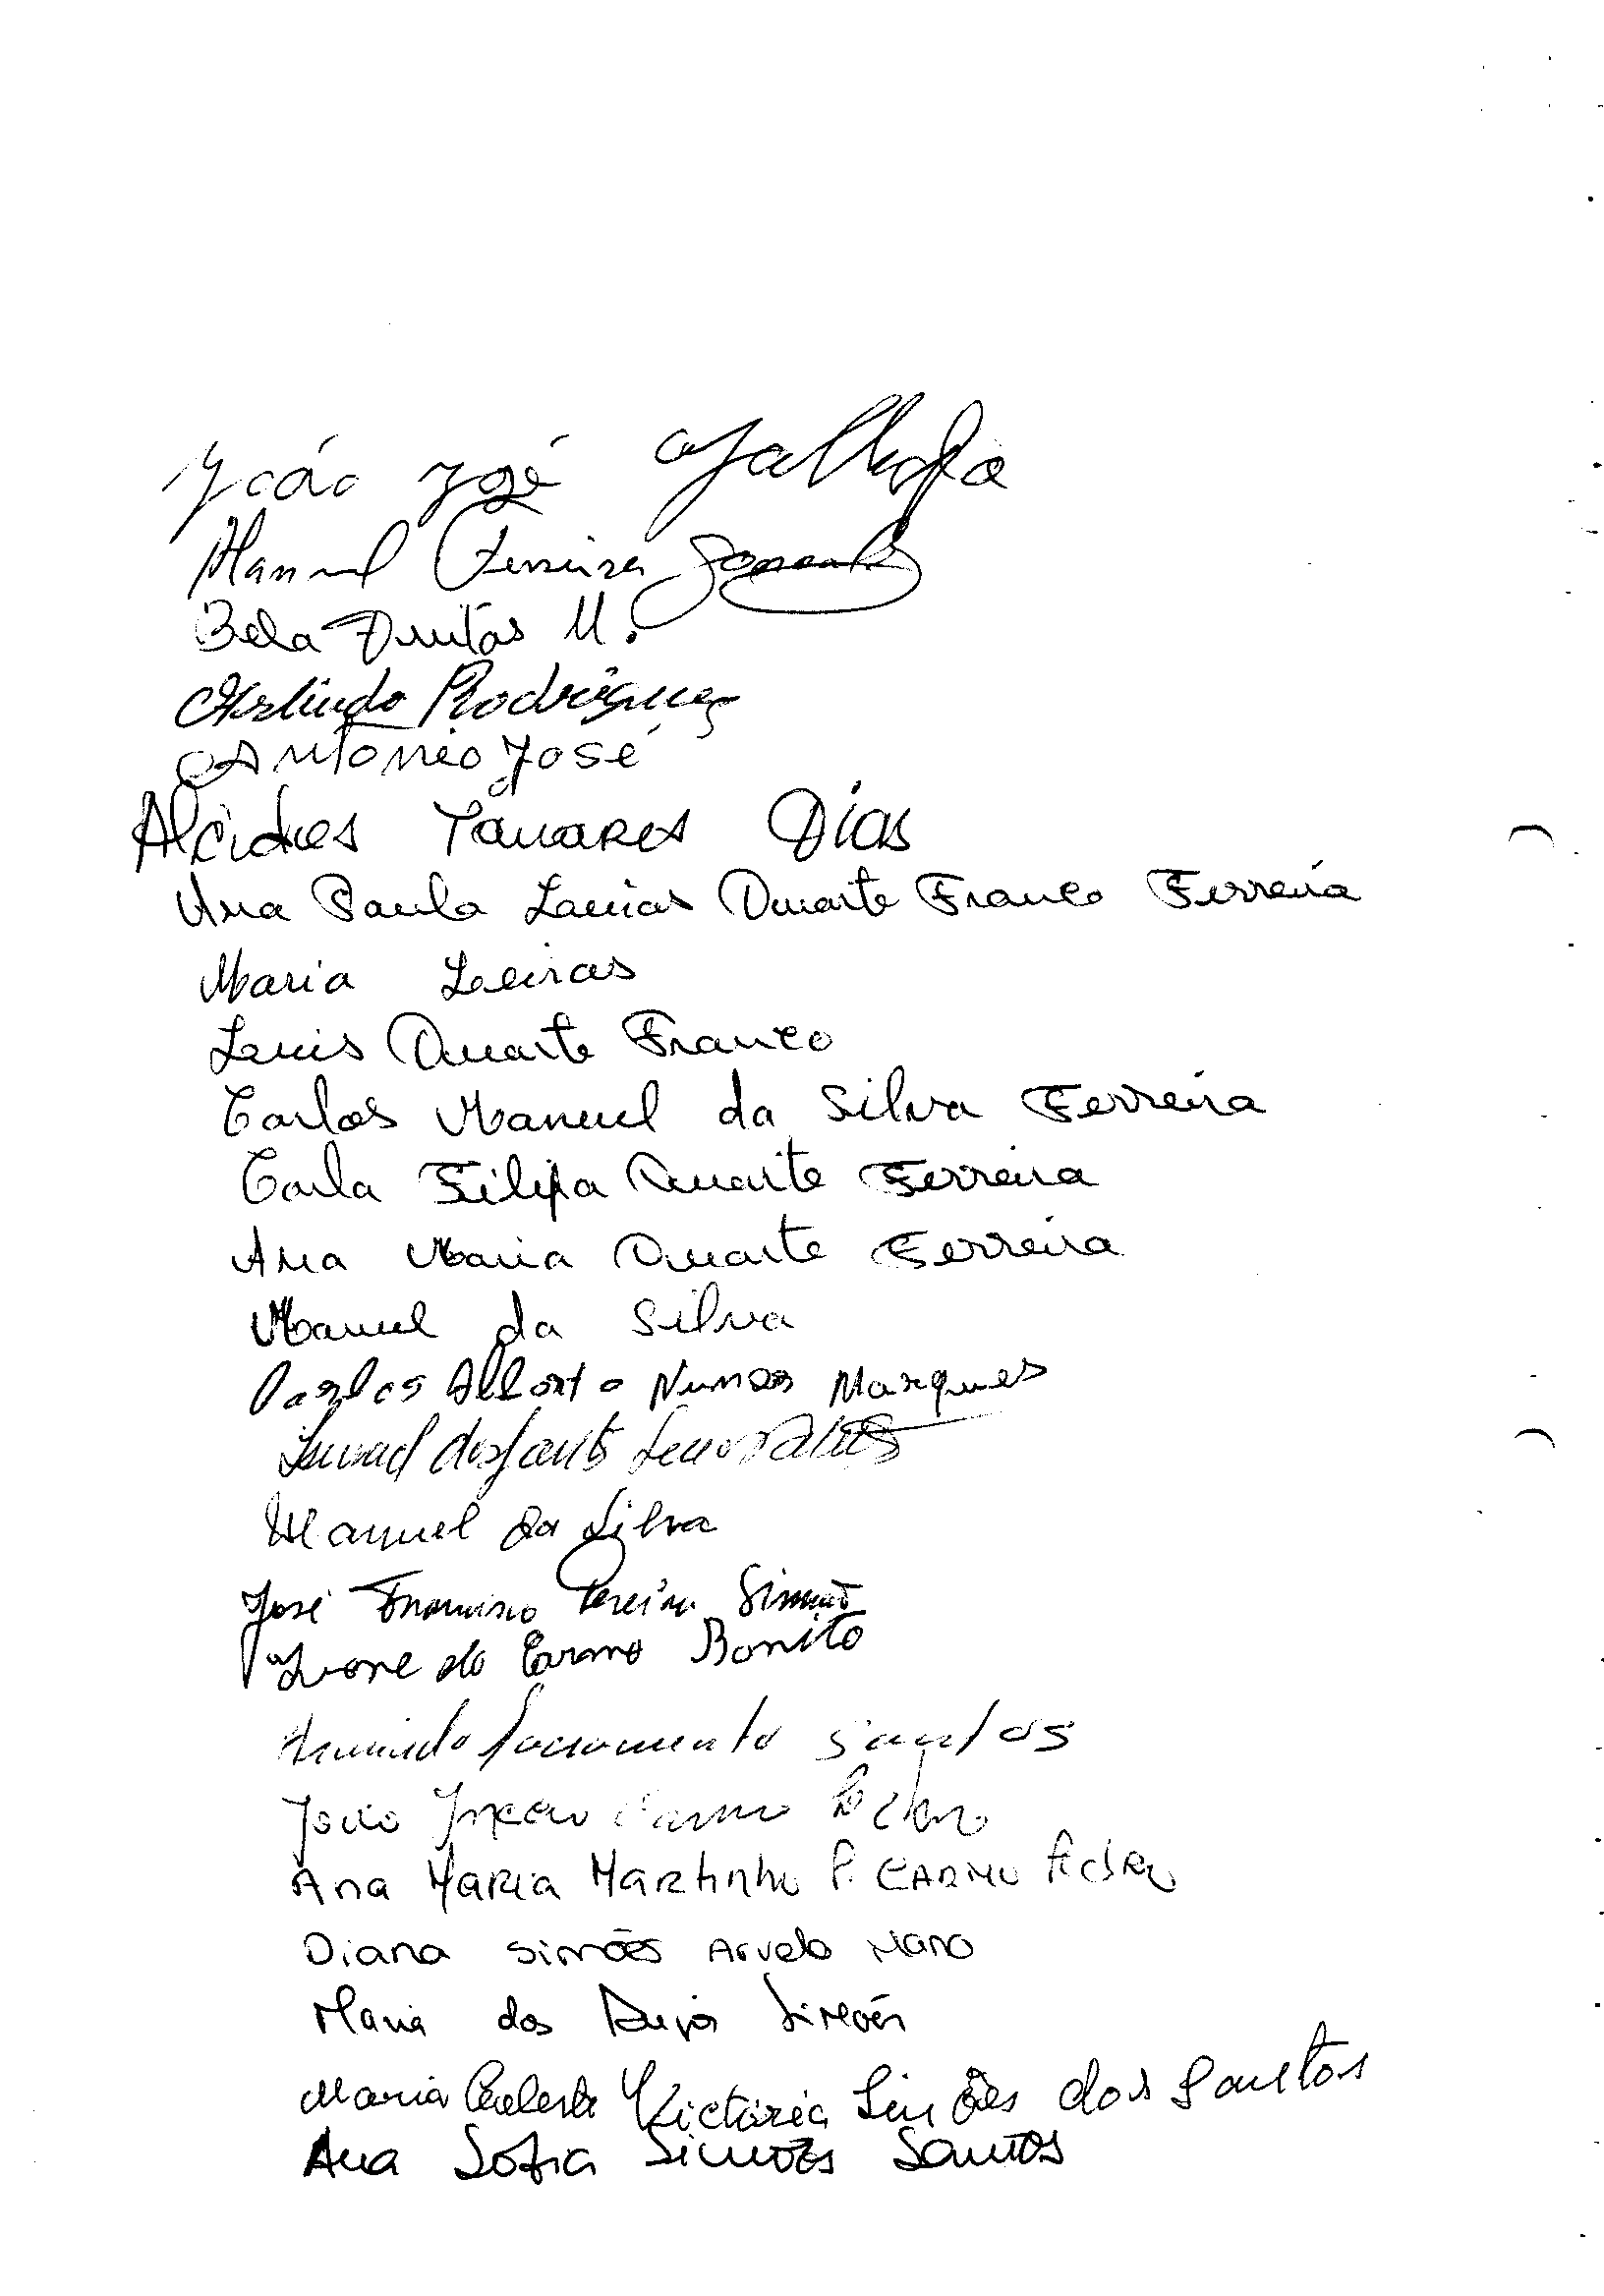 João José
Manuel Ferreira
Bela Freitas M.
Arlindo Rodrigues
António José
Alcides Tavares Dias
Ana Paula Duarte Franco Ferreira
Maria Leiras
Luis Duarte Franco
Carlos Manuel da Silva Ferreira
Carla Filipa Duarte Ferreira
Ana Maria Duarte Ferreira
Manuel da Silva
Carlos Alberto Nunes Marques
dos Santos
Manuel da Silva
José Francisco Pereira Simão
Ivone do Carmo Bonito
Armindo Sacramento Santos
João Carmo
Ana Maria Martinho P. Carmo
Diana Simões Arvelo Mano
Maria dos Simões
Maria Celeste Victória Simões dos Santos
Ana Sofia Simões Santos